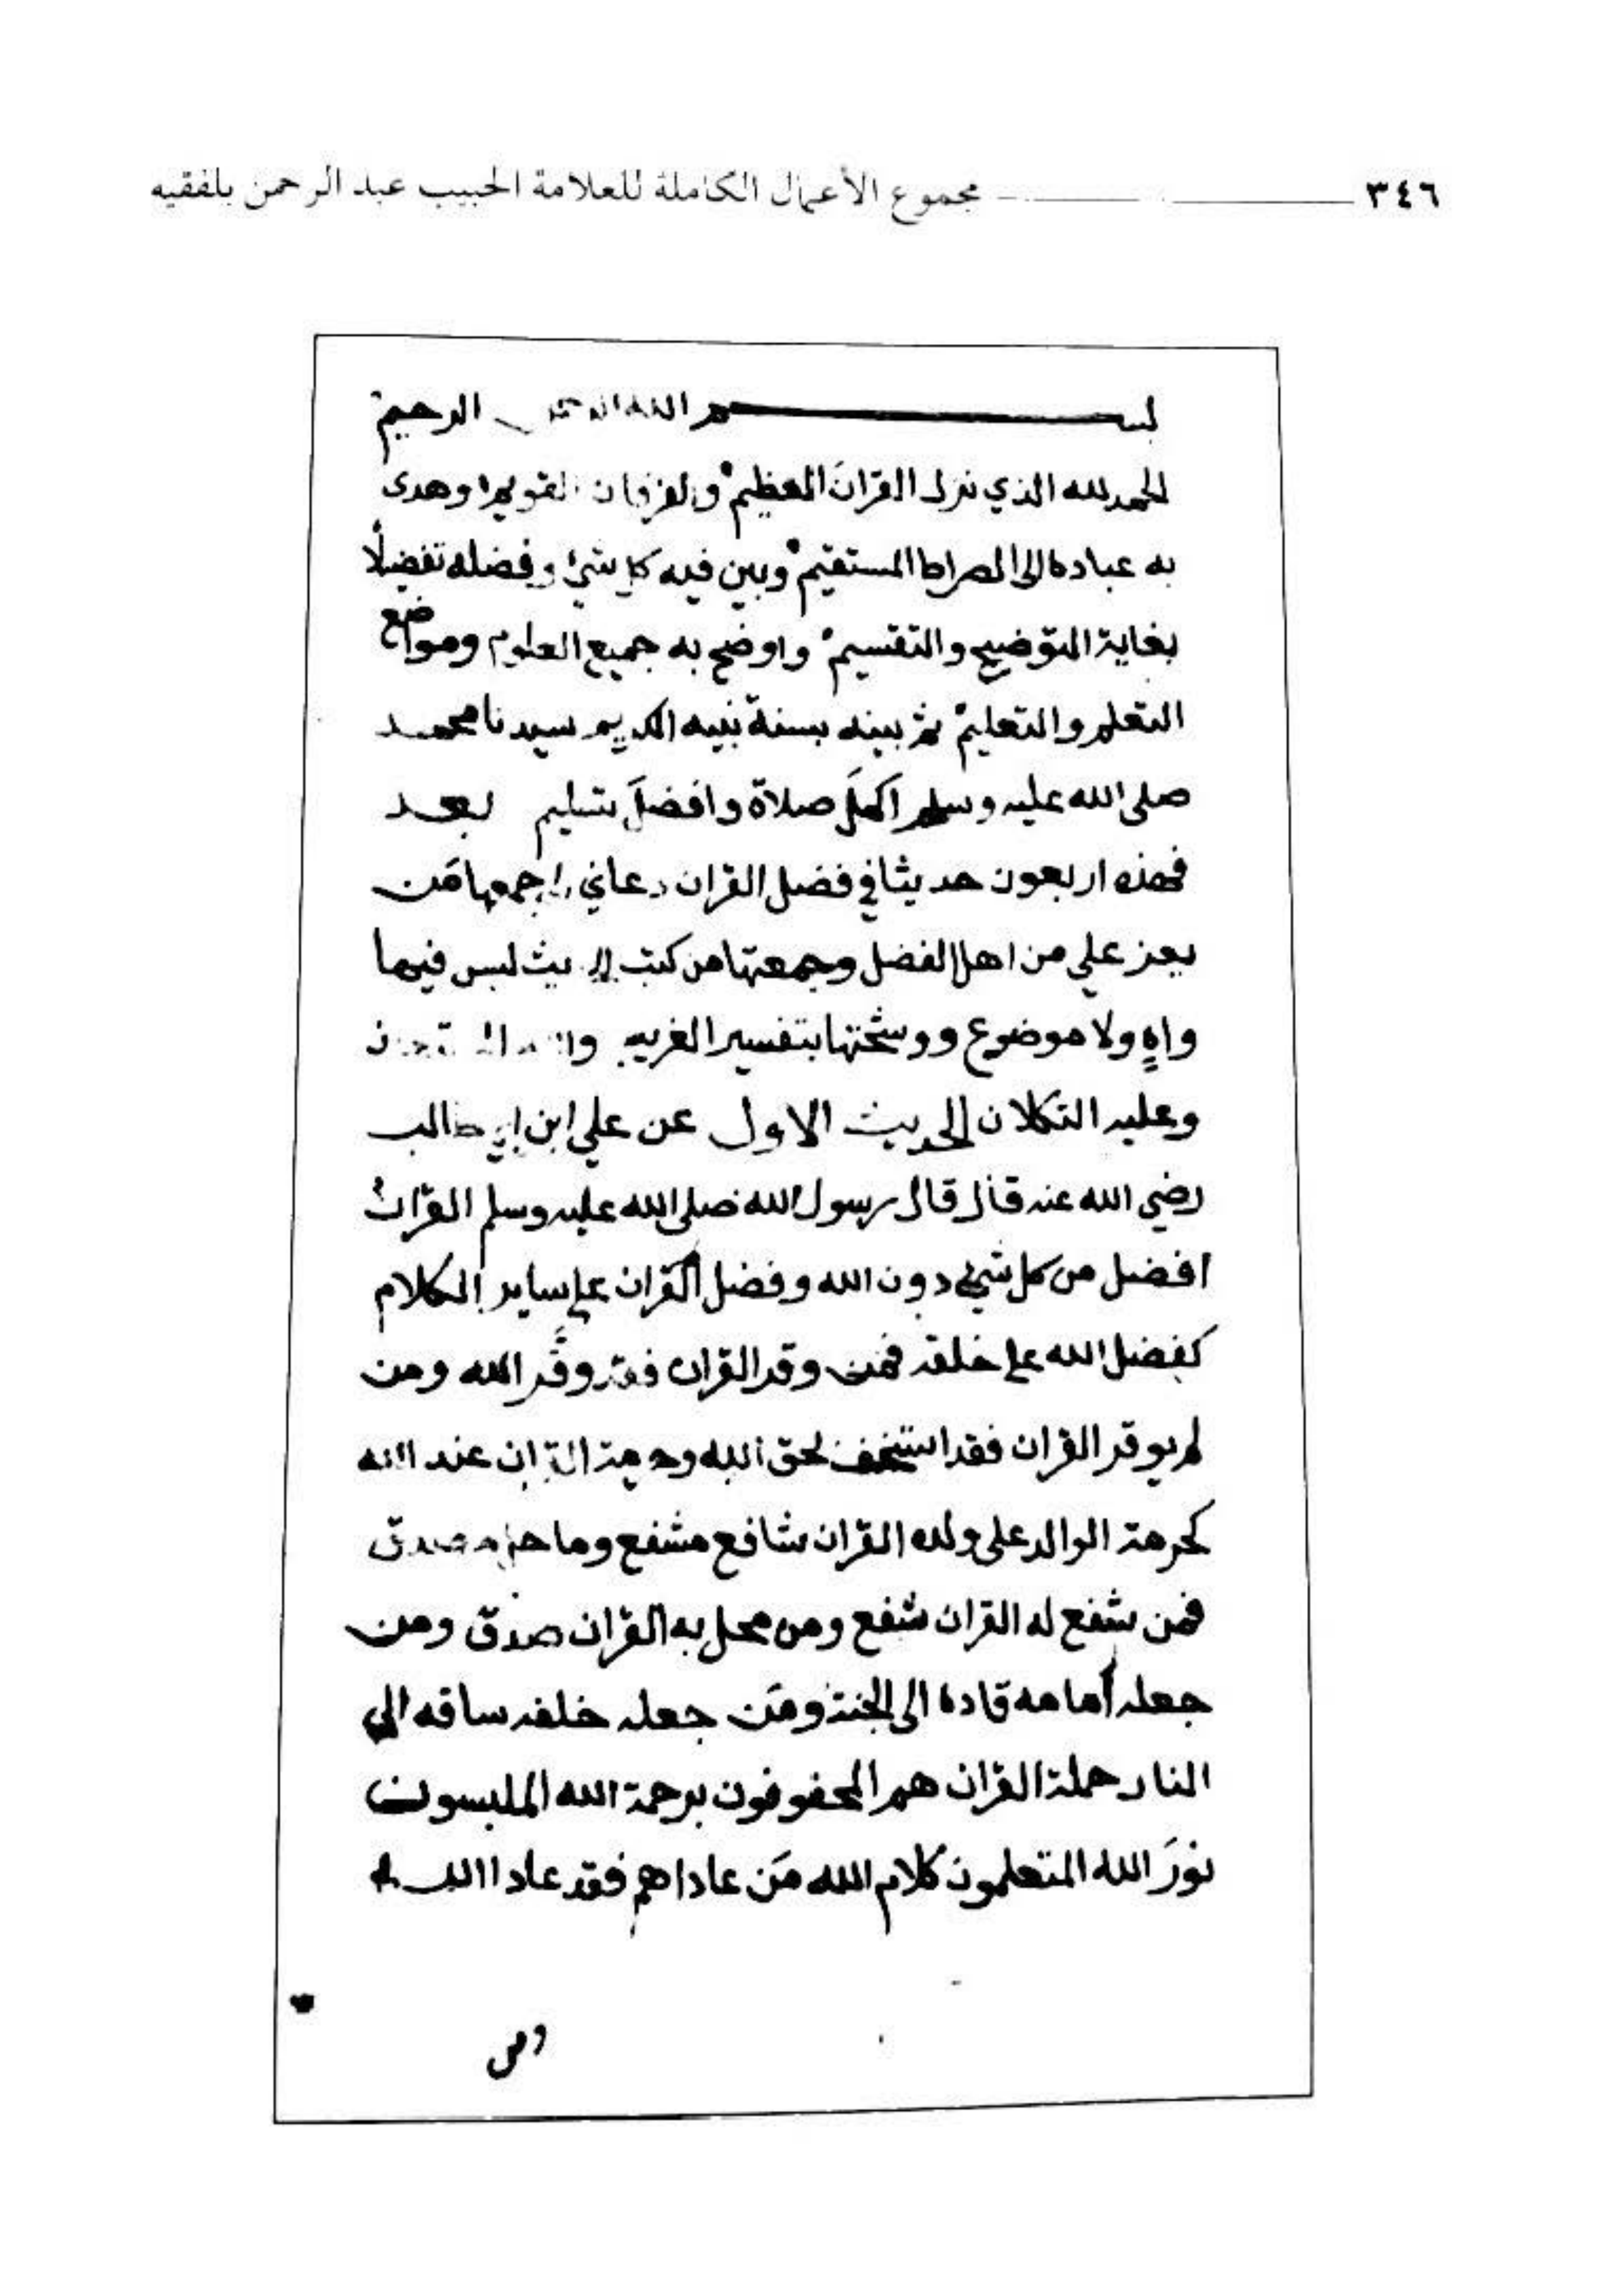 ٣٤٦ مجموع الأعمال الكاملة للعلامة الحبيب عبد الرحمن بلفقيه
بسم الله الرحمن الرحيم
الحمد لله الذي نزل القرانَ العظيم والفرقان القويم وهدى
به عباده الى الصراط المستقيم وبين فيه كل شئ وفضله تفضيلًا
بغاية التوضيح والتقسيم واوضح به جميع العلوم ومواضع
التعلم والتعليم ثم بينه بسنة نبيه الكريم سيدنا محمد
صلى الله عليه وسلم اكملَ صلاة وافضلَ تسليم بعد
فهذه اربعون حديثا في فضل القران دعاني لجمعها مَن
يعز علي من اهل الفضل وجمعتها من كتب ليس فيها
واهٍ ولا موضوع ووشحتها بتفسير الغريب
وعليه التكلان الحديث الاول عن علي ابن ابي طالب
رضي الله عنه قال قال رسول الله صلى الله عليه وسلم القرانُ
افضل من كل شيء دون الله وفضل القران على ساير الكلام
كفضل الله على خلقه فمن وقر القران فقد وقَّر الله ومن
لم يوقر القران فقد استخف لحق الله وحرمة القران عند الله
كحرمة الوالد على ولده القران شافع مشفع وماحل مصدق
فمن شفع له القران شفع ومن محل به القران صدق ومن
جعله أمامه قاده الى الجنة ومَن جعله خلفه ساقه الى
النار حملة القران هم المحفوفون برحمة الله الملبسون
نورَ الله المتعلمون كلام الله مَن عاداهم فقد عادا الله
ومن